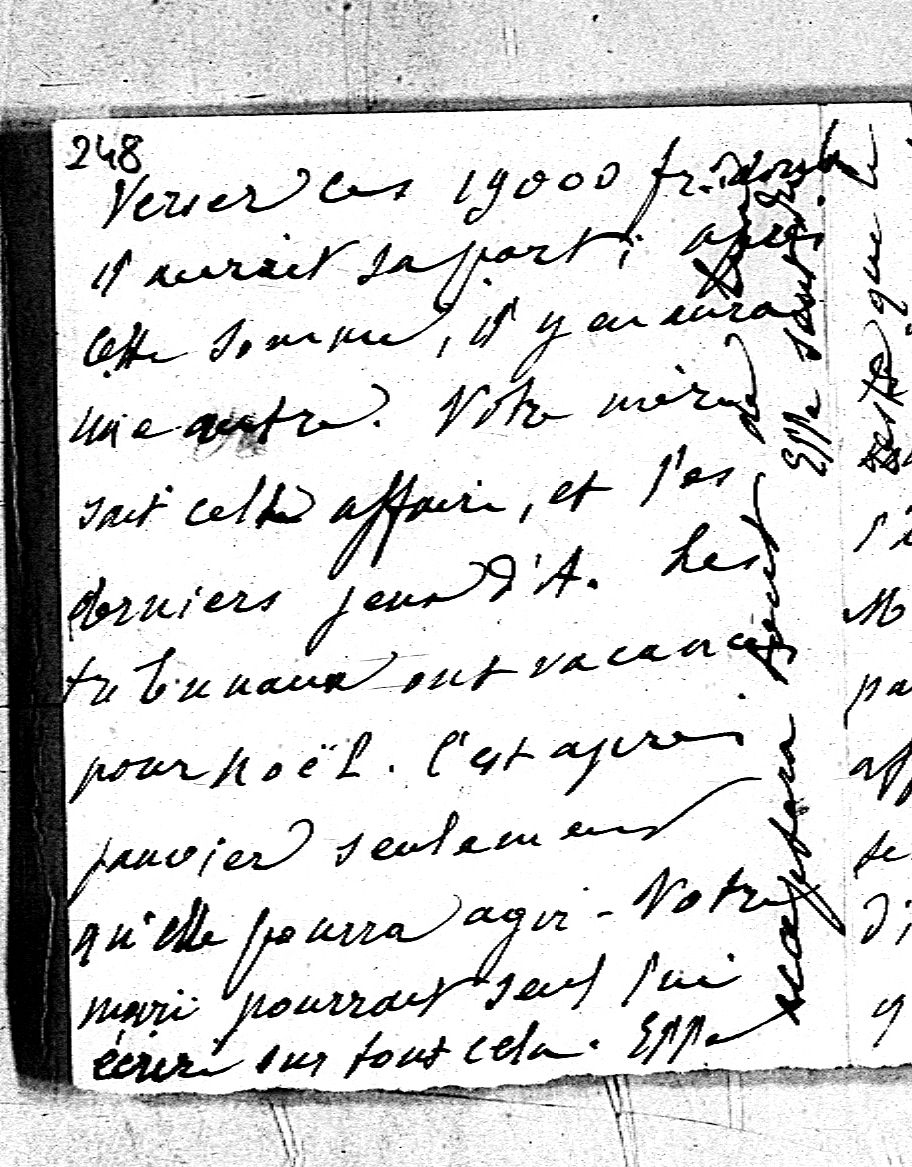 248
Verser les 19000 fr. dont
il aurait sa part ; après
cette somme, il y en aura
une autre. Votre mère
sait cette affaire, et les
derniers jeux d'A. Les
tribunaux ont vacances
pour Noël. C'est après
janvier seulement
qu'elle pourra agir - Votre
mari pourrait seul lui
écrire sur tout cela. Elle
acceptera
de
Elle sent
reste que le
l'i
M
pa
aff
te